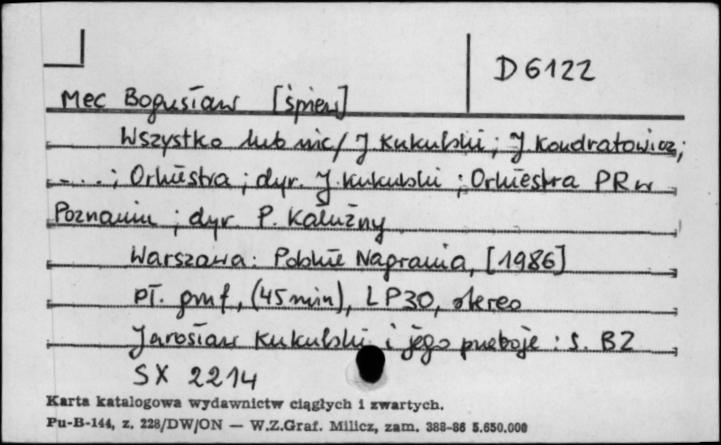 D 6122
Mec Bogusław [śpiew]
Wszystko lub nic / J. Kukulski ; J. Kondratowicz ;
- . . . ; Orkiestra ; dyr. J. Kukulski ; Orkiestra PR w
Poznaniu ; dyr. P. Kałużny
Warszawa : Polskie Nagrania, [1986]
pł. gmf, (45 min), LP30, stereo
Jarosław Kukulski i jego przeboje : s. B2
SX 2214
Karta katalogowa wydawnictw ciągłych i zwartych.
Pu-B-144, z. 228/DW/ON — W.Z.Graf. Milicz, zam. 388-86 5.650.000